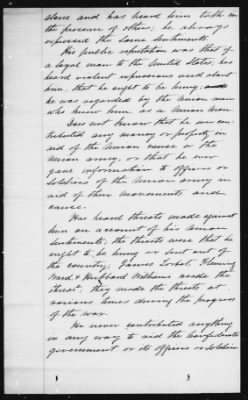 alone and has heard him talk in
the presence of others; he always
expressed the same sentiments.
His public reputation was that of
a loyal man to the United States, has
heard violent expressions used about
him, that he ought to be hung, and
he was regarded by the Union men
who knew him, as a Union man.
Does not know that he ever con-
tributed any money or property in
aid of the Union cause or the
Union army, or that he ever
gave information to officers or
soldiers of the Union army in
aid of their movements and
cause.
Has heard threats made against
him on account of his Union
sentiments; the threats were that he
ought to be hung or sent out of
the country; James
Ward & Hubbard Williams made the
threats, they made the threats at
various times during the progress
of the war.
He never contributed anything
in any way to aid the Confederate
government or its officers or soldiers